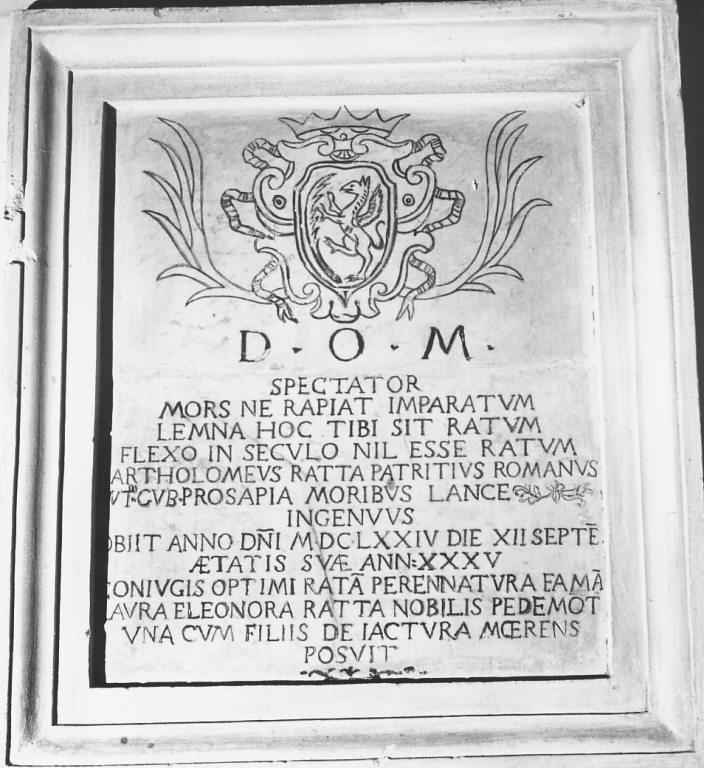 D · O · M ·
SPECTATOR
MORS NE RAPIAT IMPARATVM
LEMNA HOC TIBI SIT RATVM
FLEXO IN SECVLO NIL ESSE RATVM
ARTHOLOMEVS RATTA PATRITIVS ROMANVS
PROSAPIA MORIBVS LANCE
INGENVVS
OBIIT ANNO DÑI MDCLXXIV DIE XII SEPTĒ
ÆTATIS SVÆ ANN:XXXV
CONIVGIS OPTIMI RATÃ PERENNATVRA FAMÃ
LAVRA ELEONORA RATTA NOBILIS PEDEMŌT
VNA CVM FILIIS DE IACTVRA MŒRENS
POSVIT